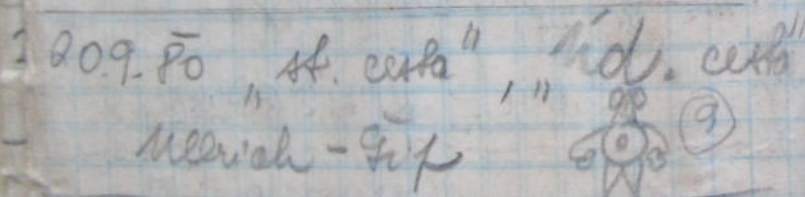 20.9.80 „st. cesta", „Úd. cesta"
Ullrich - Fip 9